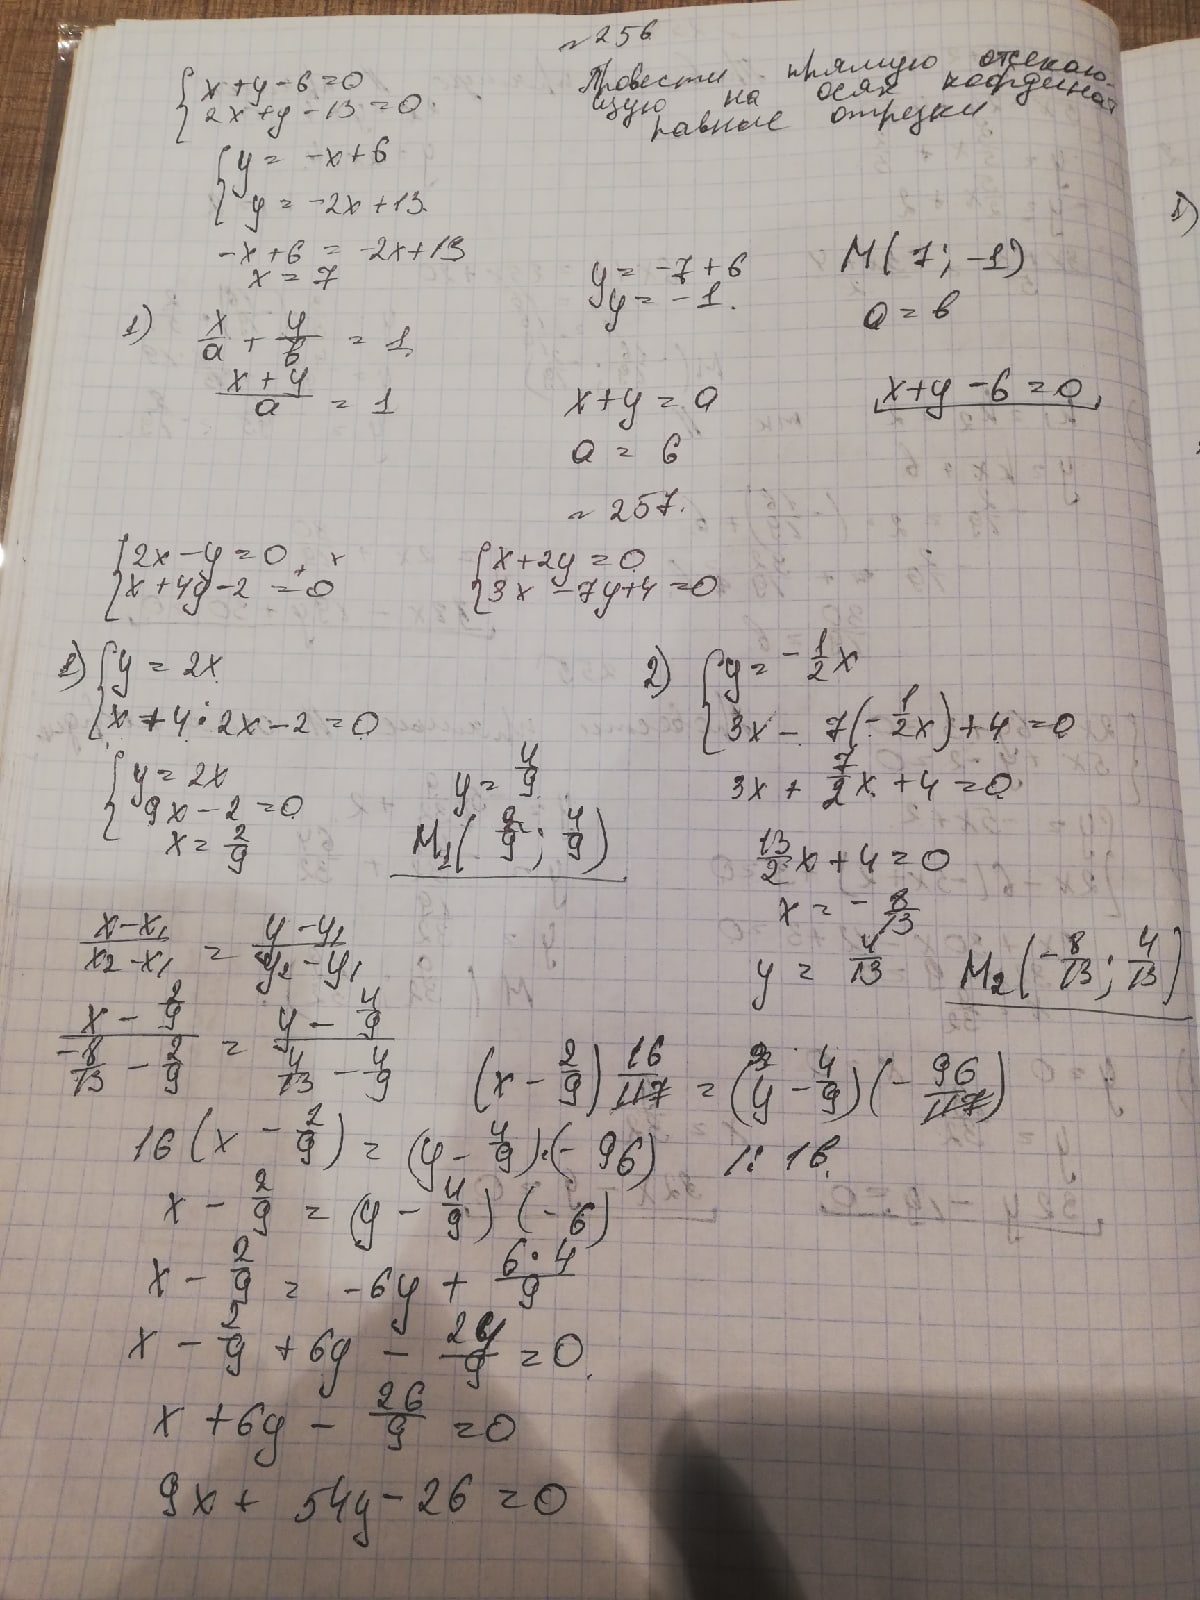 №256
{x+y-6=0
{2x+y-13=0.
Провести прямую отсекаю-
щую на осях координат
равные отрезки
{y = -x+6
{y = -2x+13.
-x+6 = -2x+13
x = 7
y = -7+6
y = -1.
M(7; -1)
a = b
1) x/a + y/b = 1.
(x+y)/a = 1
x+y = a
a = 6
x+y-6=0
№257.
{2x-y=0
{x+4y-2=0
{x+2y=0
{3x-7y+4=0
1) {y = 2x
{x+4·2x-2=0
{y = 2x
{9x-2=0
x = 2/9
y = 4/9
M₁(2/9; 4/9)
2) {y = -1/2x
{3x - 7(-1/2x)+4=0
3x + 7/2x + 4 = 0
13/2x + 4 = 0
x = -8/13
y = 4/13
M₂(-8/13; 4/13)
(x-x₁)/(x₂-x₁) = (y-y₁)/(y₂-y₁)
(x - 2/9)/(-8/13 - 2/9) = (y - 4/9)/(4/13 - 4/9)
(x - 2/9) 16/117 = (y - 4/9)(-96/117)
16(x - 2/9) = (y - 4/9)·(-96) /:16.
x - 2/9 = (y - 4/9)(-6)
x - 2/9 = -6y + 6·4/9
x - 2/9 + 6y - 24/9 = 0.
x + 6y - 26/9 = 0
9x + 54y - 26 = 0